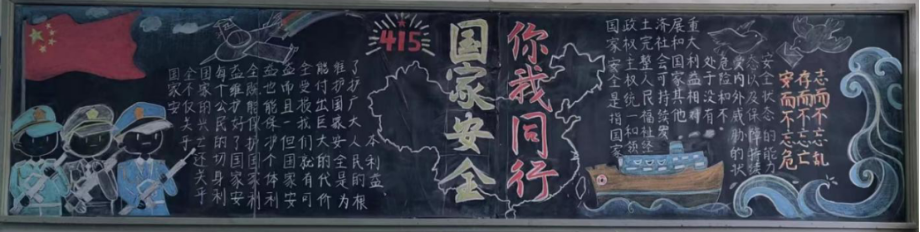 415
国家安全
你我同行
国家安
全不仅关乎
国家的兴亡还关乎
每个公民的切身利
益维护好了国家安
全既能保护国家利
益也能保护个体利
益而且一但国家安
全受损我们就有可
能付出巨大的代价
维护国家安全是为
了护广大人民的根
本利益
国家安全是指国家
政权主权统一和领
土完整人民福祉经
济社会可持续发
展和国家其他
重大利益相对
处于没有
危险和不
受内外威胁的状
态以及保障持续
安全状态的能力
安而不忘危
存而不忘亡
志而不忘乱